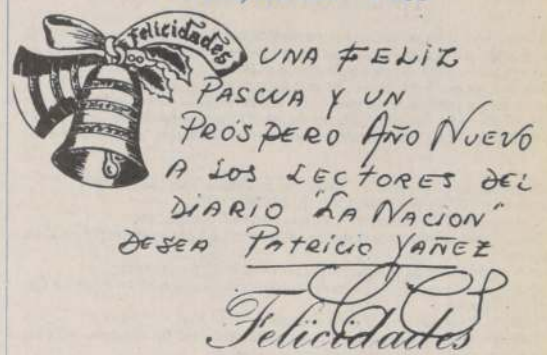 Felicidades
UNA FELIZ
PASCUA Y UN
PRÓSPERO AÑO NUEVO
A LOS LECTORES DEL
DIARIO "LA NACION"
DESEA PATRICIO YAÑEZ
Felicidades